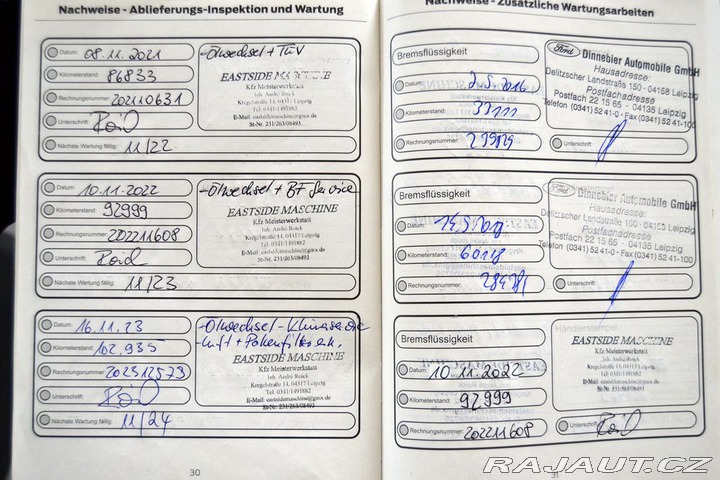 Nachweise - Ablieferungs-Inspektion und Wartung
Datum: 08.11.2021
Kilometerstand: 86833
Rechnungsnummer: 202110631
Unterschrift:
Nächste Wartung fällig: 11/22
-Ölwechsel + TÜV
EASTSIDE MASCHINE
Kfz Meisterwerkstatt
Inh. André Rosick
Kregelstraße 14, 04317 Leipzig
Tel: 0341/5491882
E-Mail: eastsidemaschine@gmx.de
St-Nr. 231/263/08493
Datum: 10.11.2022
Kilometerstand: 92999
Rechnungsnummer: 202211608
Unterschrift:
Nächste Wartung fällig: 11/23
-Ölwechsel + BF Service
EASTSIDE MASCHINE
Kfz Meisterwerkstatt
Inh. André Rosick
Kregelstraße 14, 04317 Leipzig
Tel: 0341/5491882
E-Mail: eastsidemaschine@gmx.de
St-Nr. 231/263/08493
Datum: 16.11.23
Kilometerstand: 102.935
Rechnungsnummer: 202312573
Unterschrift:
Nächste Wartung fällig: 11/24
-Ölwechsel - Klimaservice
-Luft + Pollenfilter ern.
EASTSIDE MASCHINE
Kfz Meisterwerkstatt
Inh. André Rosick
Kregelstraße 14, 04317 Leipzig
Tel: 0341/5491882
E-Mail: eastsidemaschine@gmx.de
St-Nr. 231/263/08493
30
Nachweise - Zusätzliche Wartungsarbeiten
Bremsflüssigkeit
Datum: 2.5.2016
Kilometerstand: 33111
Rechnungsnummer:
Unterschrift:
Ford Dinnebier Automobile GmbH
Hausadresse:
Delitzscher Landstraße 150 · 04158 Leipzig
Postfachadresse
Postfach 22 15 65 · 04135 Leipzig
Telefon (0341) 52 41-0 · Fax (0341) 52 41-100
Bremsflüssigkeit
Datum: 14.5.2018
Kilometerstand: 60118
Rechnungsnummer:
Unterschrift:
Ford Dinnebier Automobile GmbH
Hausadresse:
Delitzscher Landstraße 150 · 04158 Leipzig
Postfachadresse
Postfach 22 15 65 · 04135 Leipzig
Telefon (0341) 52 41-0 · Fax (0341) 52 41-100
Bremsflüssigkeit
Datum: 10.11.2022
Kilometerstand: 92999
Rechnungsnummer: 202211608
Händlerstempel
EASTSIDE MASCHINE
Kfz Meisterwerkstatt
Inh. André Rosick
Kregelstraße 14, 04317 Leipzig
Tel: 0341/5491882
E-Mail: eastsidemaschine@gmx.de
St-Nr. 231/263/08493
Unterschrift:
31
RAJAUT.CZ